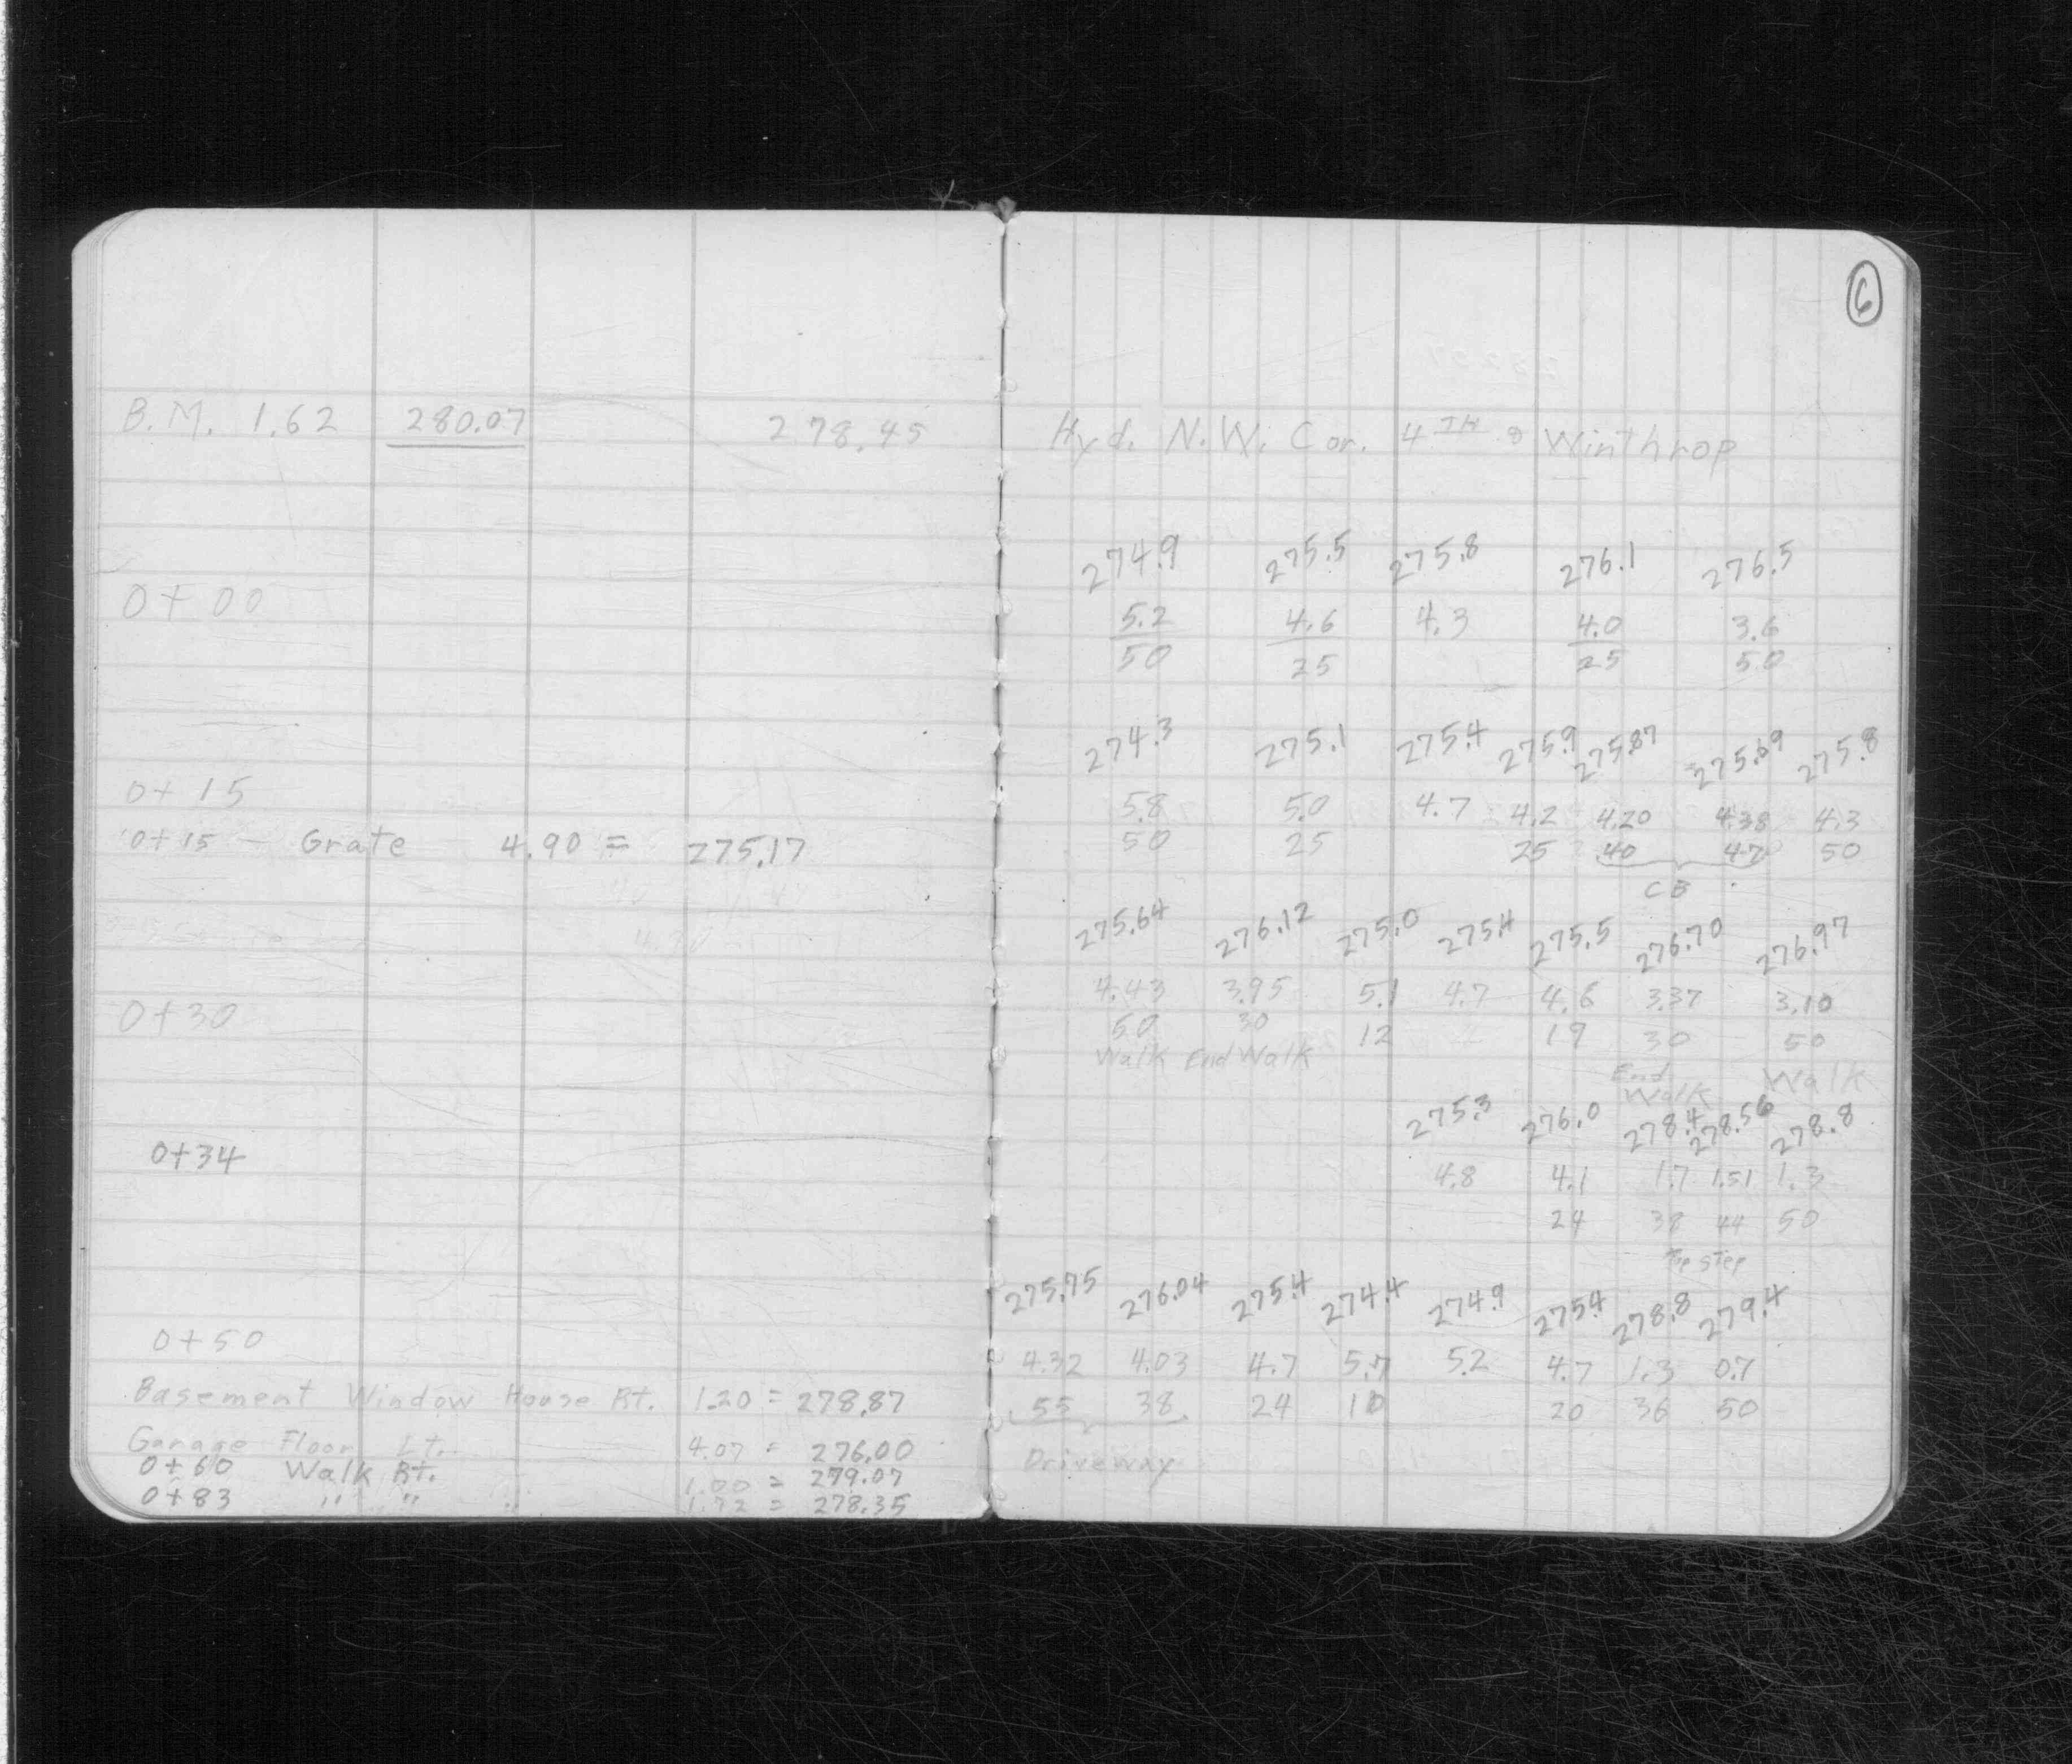 6
B.M. 1.62 280.07 278.45 Hyd. N.W. Cor. 4TH & Winthrop
274.9 275.5 275.8 276.1 276.5
0+00 5.2 4.6 4.3 4.0 3.6
50 25 25 50
274.3 275.1 275.4 275.9 275.87 275.69 275.8
0+15 5.8 5.0 4.7 4.2 4.20 4.38 4.3
0+15 - Grate 4.90 = 275.17 50 25 25 40 47 50
CB
275.64 276.12 275.0 275.4 275.5 276.70 276.97
4.43 3.95 5.1 4.7 4.6 3.37 3.10
0+30 50 30 12 19 30 50
Walk End Walk End Walk Walk
275.3 276.0 278.4 278.56 278.8
0+34 4.8 4.1 1.7 1.51 1.3
24 38 44 50
Top Step
275.75 276.04 275.4 274.4 274.9 275.4 278.8 279.4
0+50 4.32 4.03 4.7 5.7 5.2 4.7 1.3 0.7
Basement Window House Rt. 1.20 = 278.87 55 38 24 10 20 36 50
Garage Floor Lt. 4.07 = 276.00 Driveway
0+60 Walk Rt. 1.00 = 279.07
0+83 " " 1.72 = 278.35